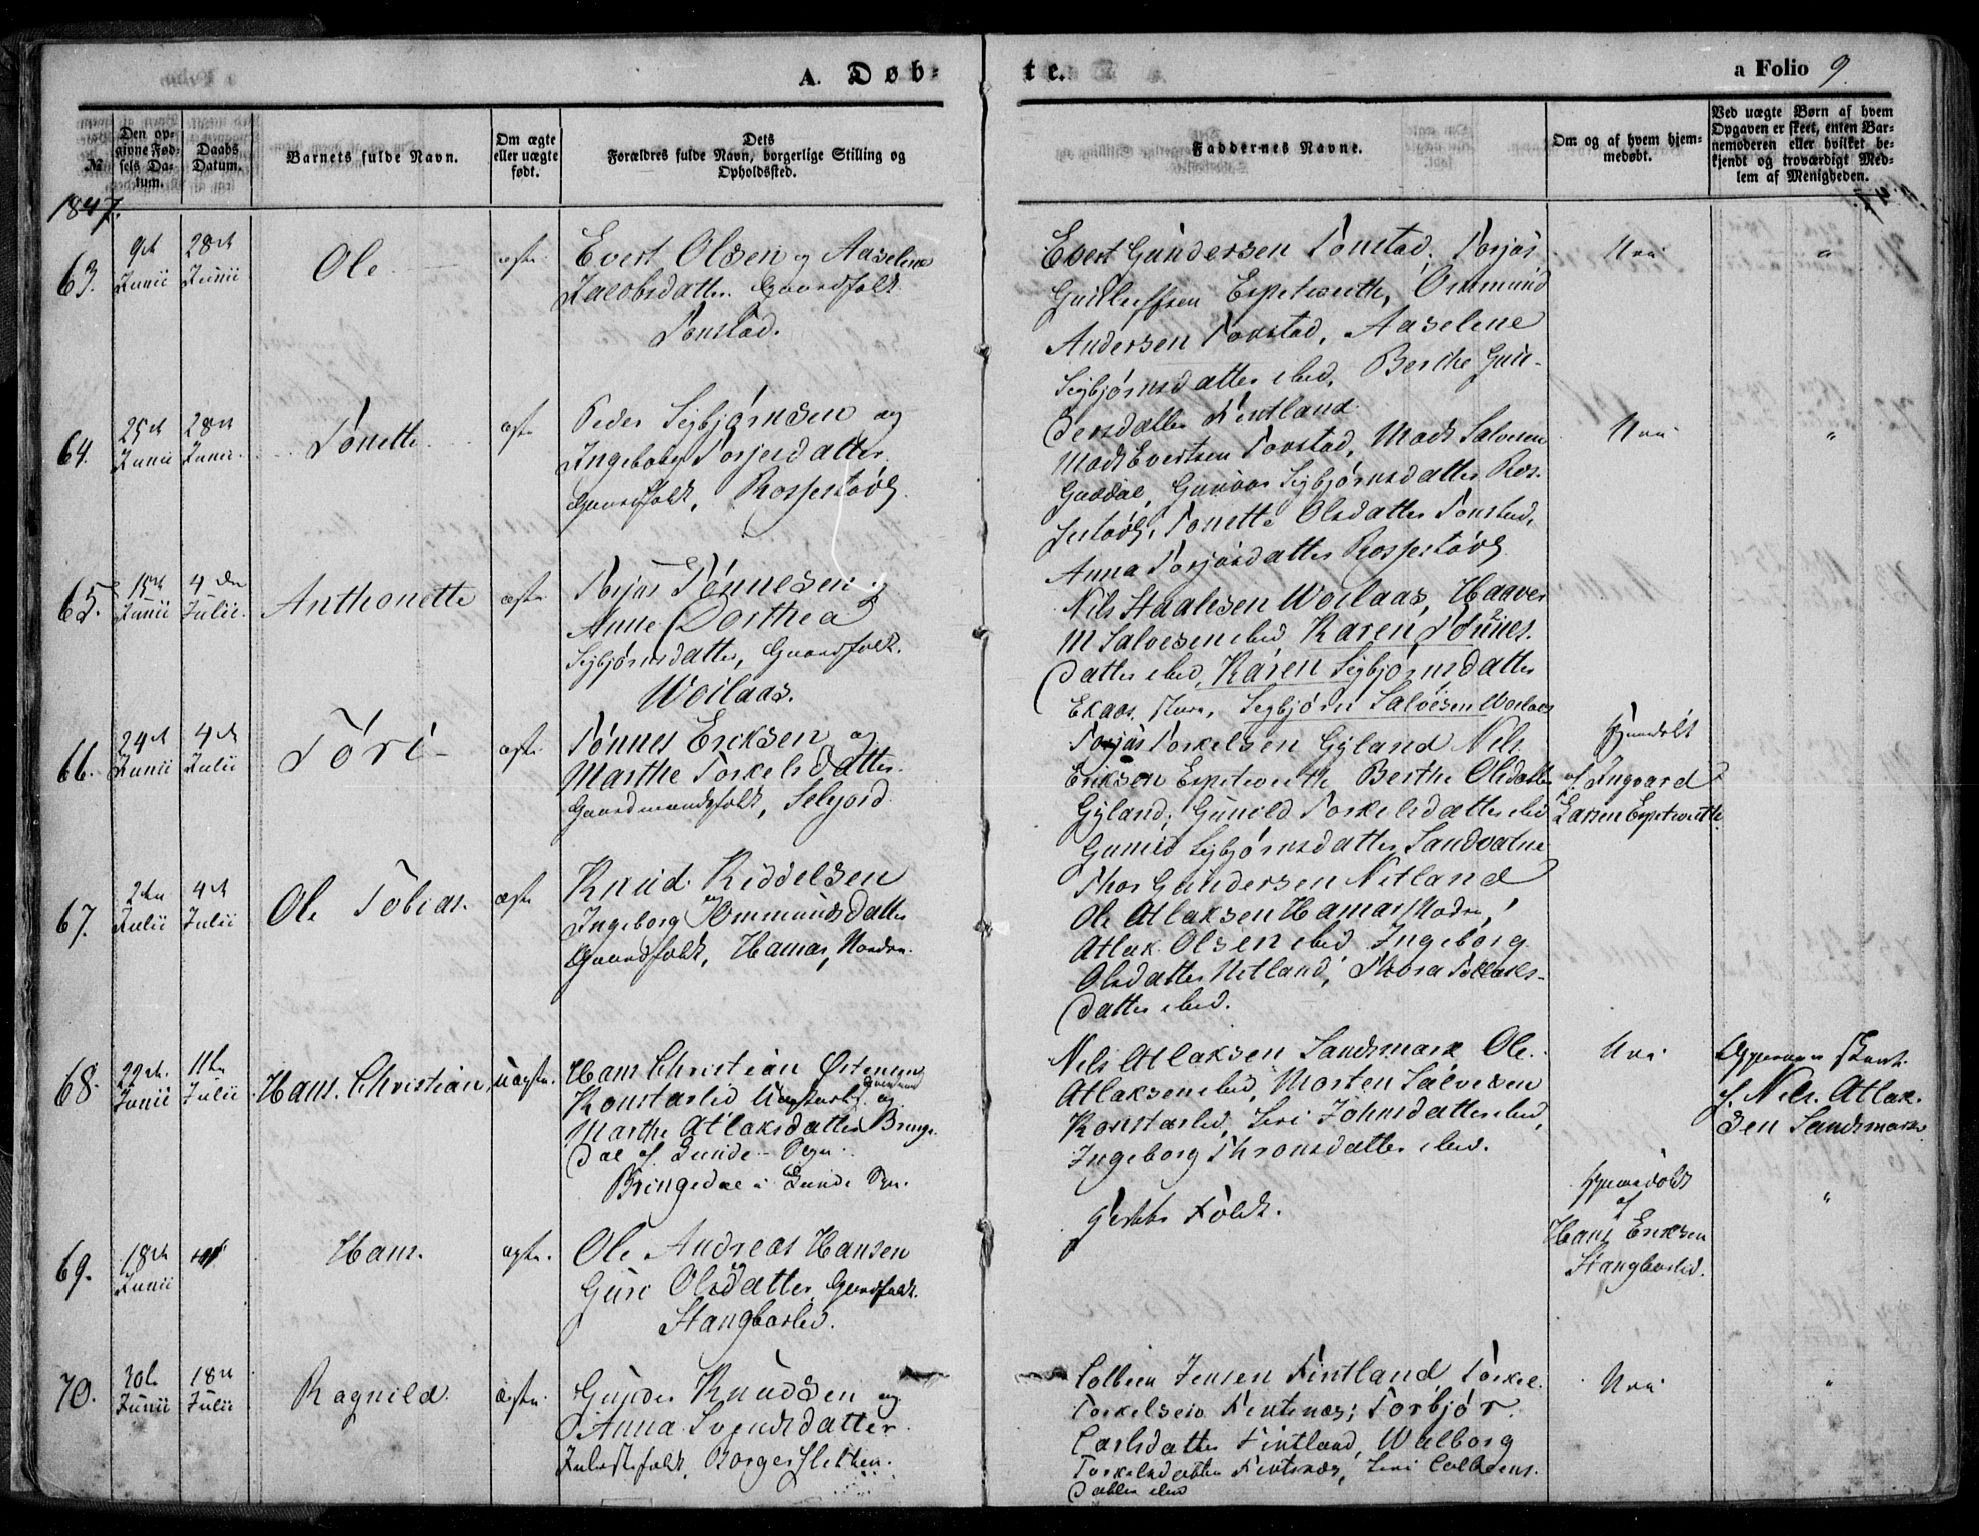 A. Døb-
te.
a Folio 9.
№
Den op-
givne Fød-
sels Da-
tum.
Daabs
Datum.
Barnets fulde Navn.
Om ægte
eller uægte
født.
Dets
Forældres fulde Navn, borgerlige Stilling og
Opholdssted.
Faddernes Navne.
Om og af hvem hjem-
medøbt.
Ved uægte Børn af hvem
Opgaven er skeet, enten Bar-
nemoderen eller hvilket be-
kjendt og troværdigt Med-
lem af Menigheden.
1847.
63.
9de
Junii
28de
Junii
Ole
ægte
Evert Olsen og Aaselene
Jacobsdatter. Gaardfolk
Tonstad.
Evert Gundersen Tonstad, Torjus
Gunleffsen Espetveith, Ommund
Andersen Tonstad, Aaselene
Sigbjørnsdatter ibid, Berthe Gun-
dersdatter Fintland.
Nei
"
64.
25de
Junii
28de
Junii
Tonette
ægte
Peder Sigbjørnsen og
Ingeborg Torjersdatter
Gaardfolk, Rosjestøhl
Mads Evertsen Tonstad, Mads Salvesen
Guddal, Gunvor Sigbjørnsdatter Ros-
jestøhl, Tonette Olsdatter Tonstad,
Anna Torjusdatter Rosjestøhl
Nei
"
65.
15de
Junii
4de
Julii.
Anthonette
ægte
Torjus Tønnesen og
Anne Dorthea
Sigbjørnsdatter, Gaardfolk.
Woilaas.
Nils Staalesen Woilaas, Haaver
M Salvesen ibid, Karen Tønnes-
datter ibid, Karen Sigbjørnsdatter
Ekaas, Sigbjørn Salvesen Woilaas
66.
24de
Junii
4de
Julii
Tóri
ægte
Tønnes Ericksen og
Marthe Torkelsdatter
Gaardmandsfolk, Seljord
Torjus Torkelsen Gyland Nels
Eriksen Espetveith Berthe Olsdatter
Gyland, Gunild Torkelsdatter ibid
Gunild Sigbjørnsdatter Sandvatne
Hjemdøbt
af Ingvard
Larsen Espetveith.
67.
2den
Julii
4de
Julii
Ole Tobias.
ægte
Knud Reddelsen
og
Ingeborg Ommundsdatter
Gaardfolk, Hamar, Nordre.
Thor Gundersen Netland
Ole Atlaksen Hamar Nodre,
Atlak Olsen ibid, Ingeborg
Olsdatter Netland, Thora Tollaks-
datter ibid.
68.
29de
Junii
11te
Julii
Hans Christian,
uægte.
Hans Christian Østensen
Konstaslid Ungkarl og
Marthe Atlaksdatter Bringe-
dal af Lunde Sogn
Bringedal i Lunde Sogn.
Nels Atlaksen Sandsmark, Ole
Atlaksen ibid, Morten Salvesen
Konstaslid, Siri Johnsdatter ibid,
Ingeborg Thronsdatter ibid.
Nei
Opgaven skeet
af Nels Atlak-
sen Sandsmark.
69.
18de
Junii
Hans.
ægte.
Ole Andreas Hansen
og
Guri Olsdatter, Gaardfolk.
Stangborlid.
Hjemdøbt
af
Hans Eriksen
Stangborlid.
"
70.
30te
Junii
18de
Julii
Ragnild.
ægte.
Gunder Knudsen og
Anna Svendsdatter
Inderstefolk, Borgersletten.
Colbeen Jensen Fintland, Torkel
Torkelsen Fintenæs, Torbjør
Carlsdatter Fintland, Walborg
Torkelsdatter Fintenæs, Siri Colbeens-
datter ibid
Nei
"